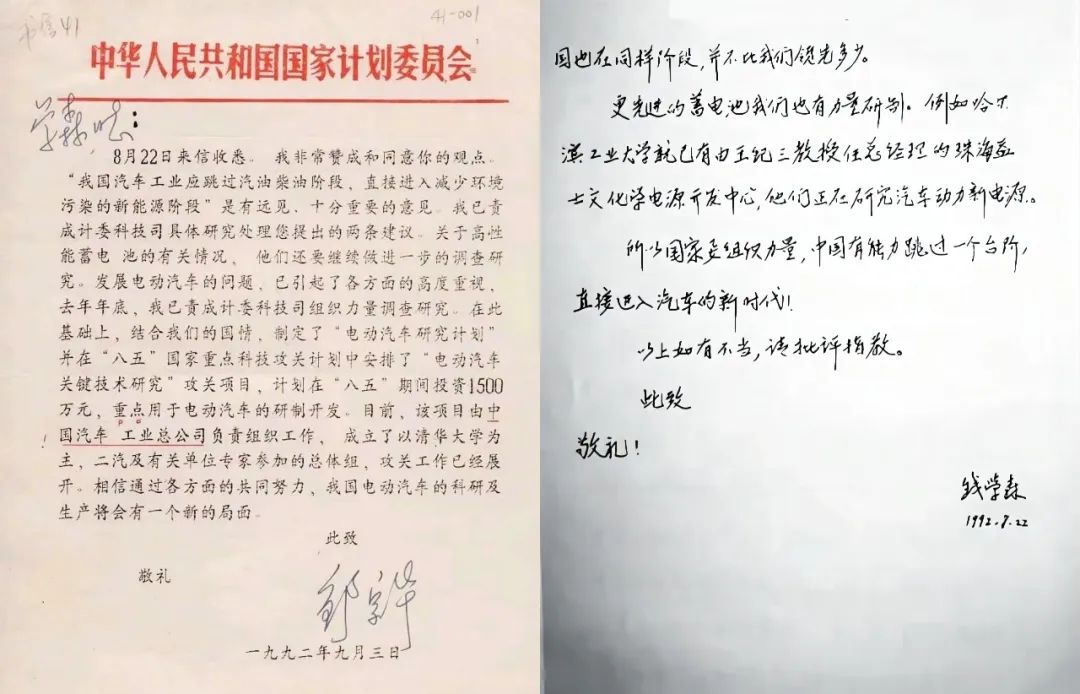 书信41
41-001
中华人民共和国国家计划委员会
学森同志:
8月22日来信收悉。我非常赞成和同意你的观点。
“我国汽车工业应跳过汽油柴油阶段,直接进入减少环境
污染的新能源阶段”是有远见、十分重要的意见。我已责
成计委科技司具体研究处理您提出的两条建议。关于高性
能蓄电 池的有关情况, 他们还要继续做进一步的调查研
究。发展电动汽车的问题,已引起了各方面的高度重视,
去年年底,我已责成计委科技司组织力量调查研究。在此
基础上,结合我们的国情,制定了“电动汽车研究计划”
并在“八五”国家重点科技攻关计划中安排了“电动汽车
关键技术研究”攻关项目,计划在“八五”期间投资1500
万元,重点用于电动汽车的研制开发。目前,该项目由中
国汽车 工业总公司负责组织工作, 成立了以清华大学为
主,二汽及有关单位专家参加的总体组,攻关工作已经展
开。相信通过各方面的共同努力,我国电动汽车的科研及
生产将会有一个新的局面。
此致
敬礼
邹家华
一九九二年九月三日
国也在同样阶段,并不比我们领先多少。
更先进的蓄电池我们也有力量研制。例如哈尔
滨工业大学就已有由王纪三教授任总经理的珠海益
士文化学电源开发中心,他们正在研究汽车动力新电源。
所以国家要组织力量,中国有能力跳过一个台阶,
直接进入汽车的新时代!
以上如有不当,请批评指教。
此致
敬礼!
钱学森
1992.8.22